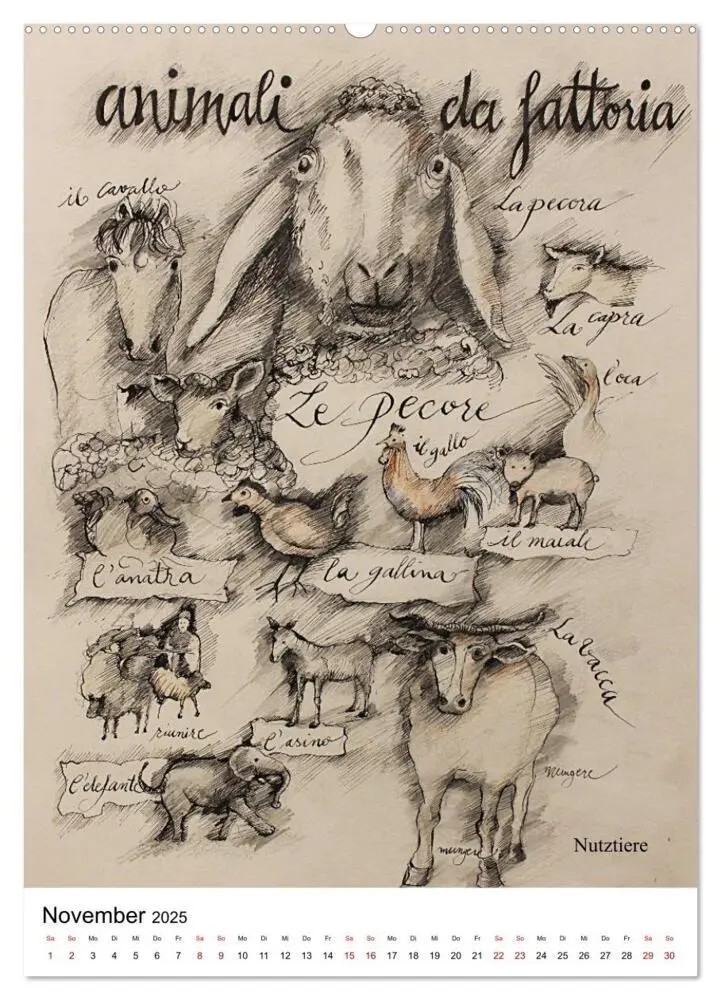 animali da fattoria
il cavallo
La pecora
La capra
l'oca
Le pecore
il gallo
il maiale
l'anatra
la gallina
La vacca
riunire
l'asino
l'elefante
mungere
mungere
Nutztiere
November 2025
Sa So Mo Di Mi Do Fr Sa So Mo Di Mi Do Fr Sa So Mo Di Mi Do Fr Sa So Mo Di Mi Do Fr Sa So
1 2 3 4 5 6 7 8 9 10 11 12 13 14 15 16 17 18 19 20 21 22 23 24 25 26 27 28 29 30